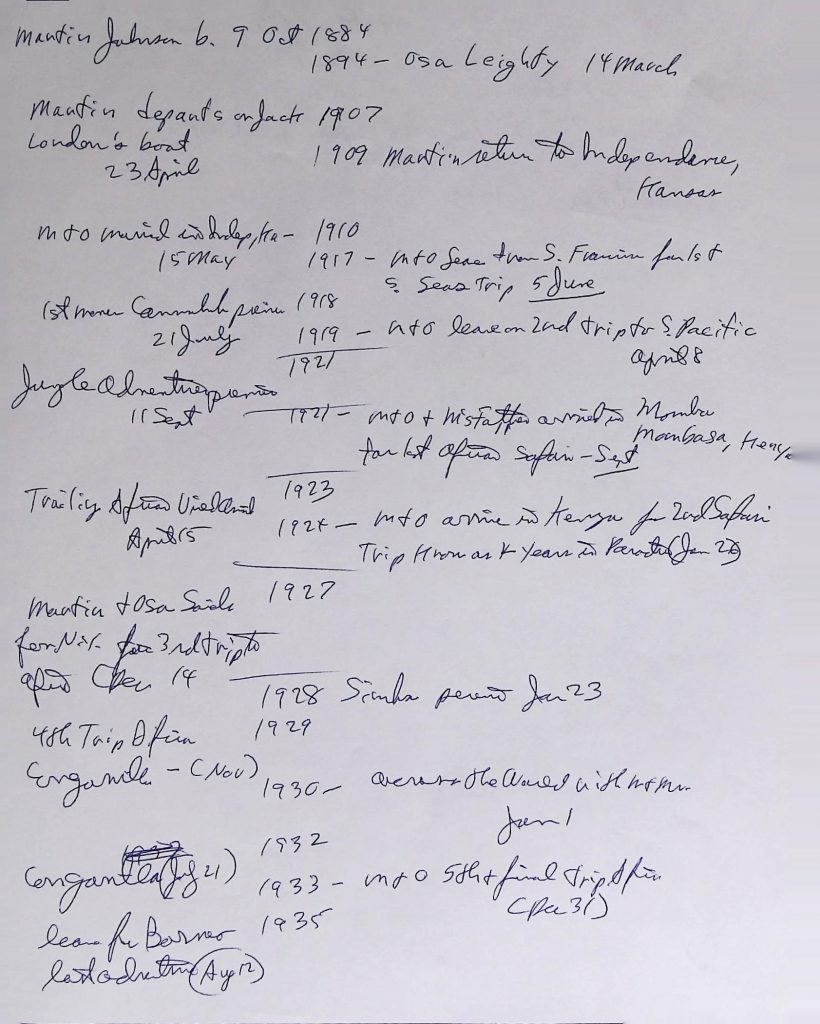 Martin Johnson b. 9 Oct 1884
1894 - Osa Leighty 14 March
Martin departs on Jack 1907
London's boat
23 April
1909 Martin return to Independence,
Kansas
M + O married in Indep, Ka - 1910
15 May
1917 - M + O leave from S. Francisco for 1st
S. Seas Trip 5 June
1st movie Cannibal premier 1918
21 July
1919 - M + O leave on 2nd trip to S. Pacific
April 8
1921
Jungle Adventures premier
11 Sept
1921 - M + O + his father arrived in Momba
Mombasa, Kenya
for 1st African Safari - Sept
1923
Trailing African Wild Animal
April 15
1924 - M + O arrive in Kenya for 2nd Safari
Trip known as 4 Years in Paradise (Jan 26)
1927
Martin + Osa Sails
for N.Y. for 3rd trip to
Africa (Dec 14
1928 Simba premier Jan 23
4th Trip Africa 1929
- (Nov)
1930 - Across the World with Mr + Mrs
Jan 1
1932
Congorilla (July 21)
1933 - M + O 5th + final trip Africa
(Dec 31)
leave for Borneo 1935
last adventure (Aug 12)